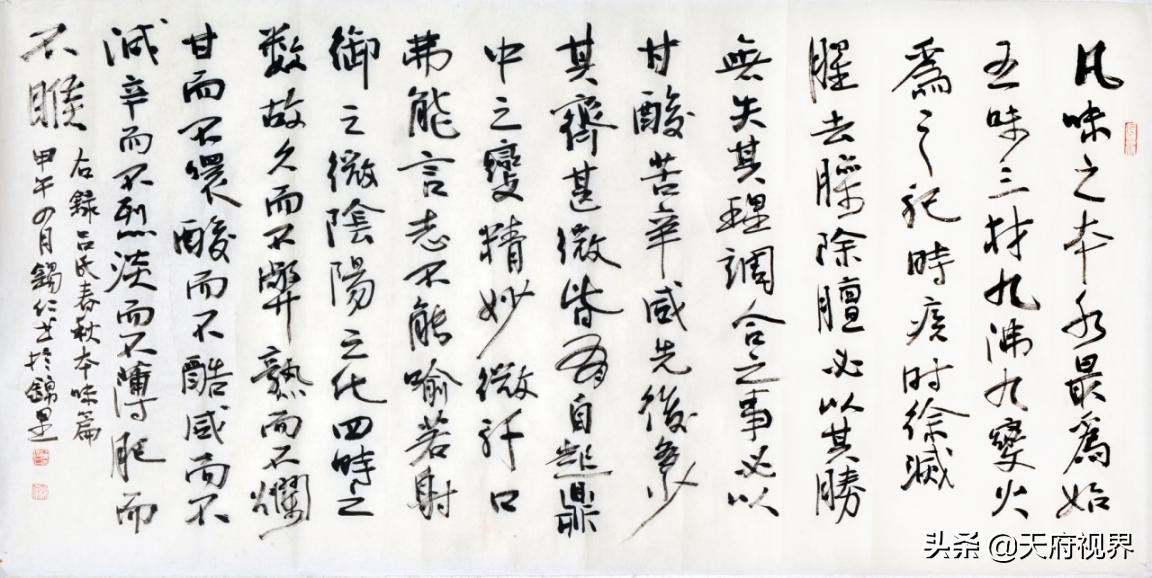 凡味之本水最爲始
五味三材九沸九變火
爲之紀時疾时徐滅
腥去臊除膻必以其勝
無失其理調合之事必以
甘酸苦辛咸先後多少
其齊甚微皆有自起鼎
中之變精妙微纤口
弗能言志不能喻若射
御之微陰陽之化四時之
數故久而不弊熟而不爛
甘而不酸而不酷咸而不
減辛而不烈淡而不薄肥而
不睺
右録吕氏春秋本味篇
甲午四月錫仁书於錦里
头条 @天府视界